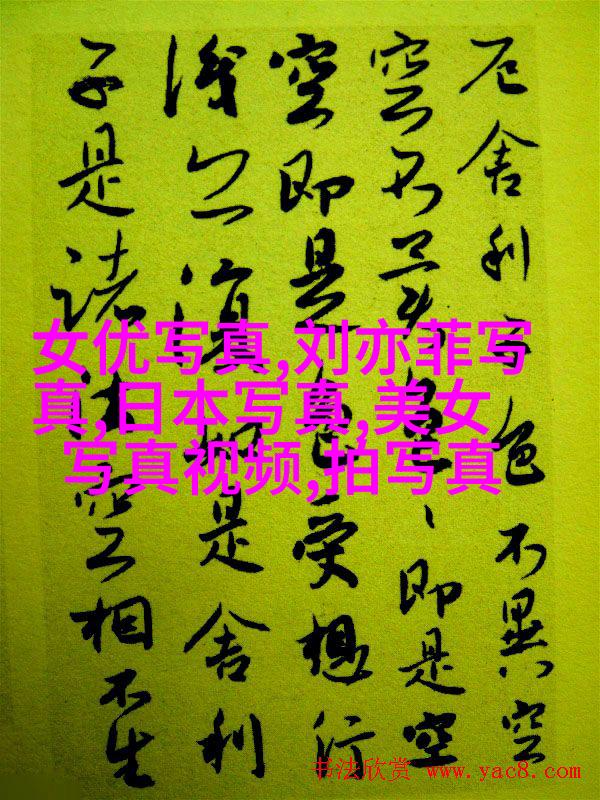 厄舍利子色不異空
空不異色、即是空
空即是色受想行
識亦復如是舍利
子是諸法空相不生
女优写真,刘亦菲写
真,日本写真,美女
写真视频,拍写真
书法欣赏 www.yac8.com